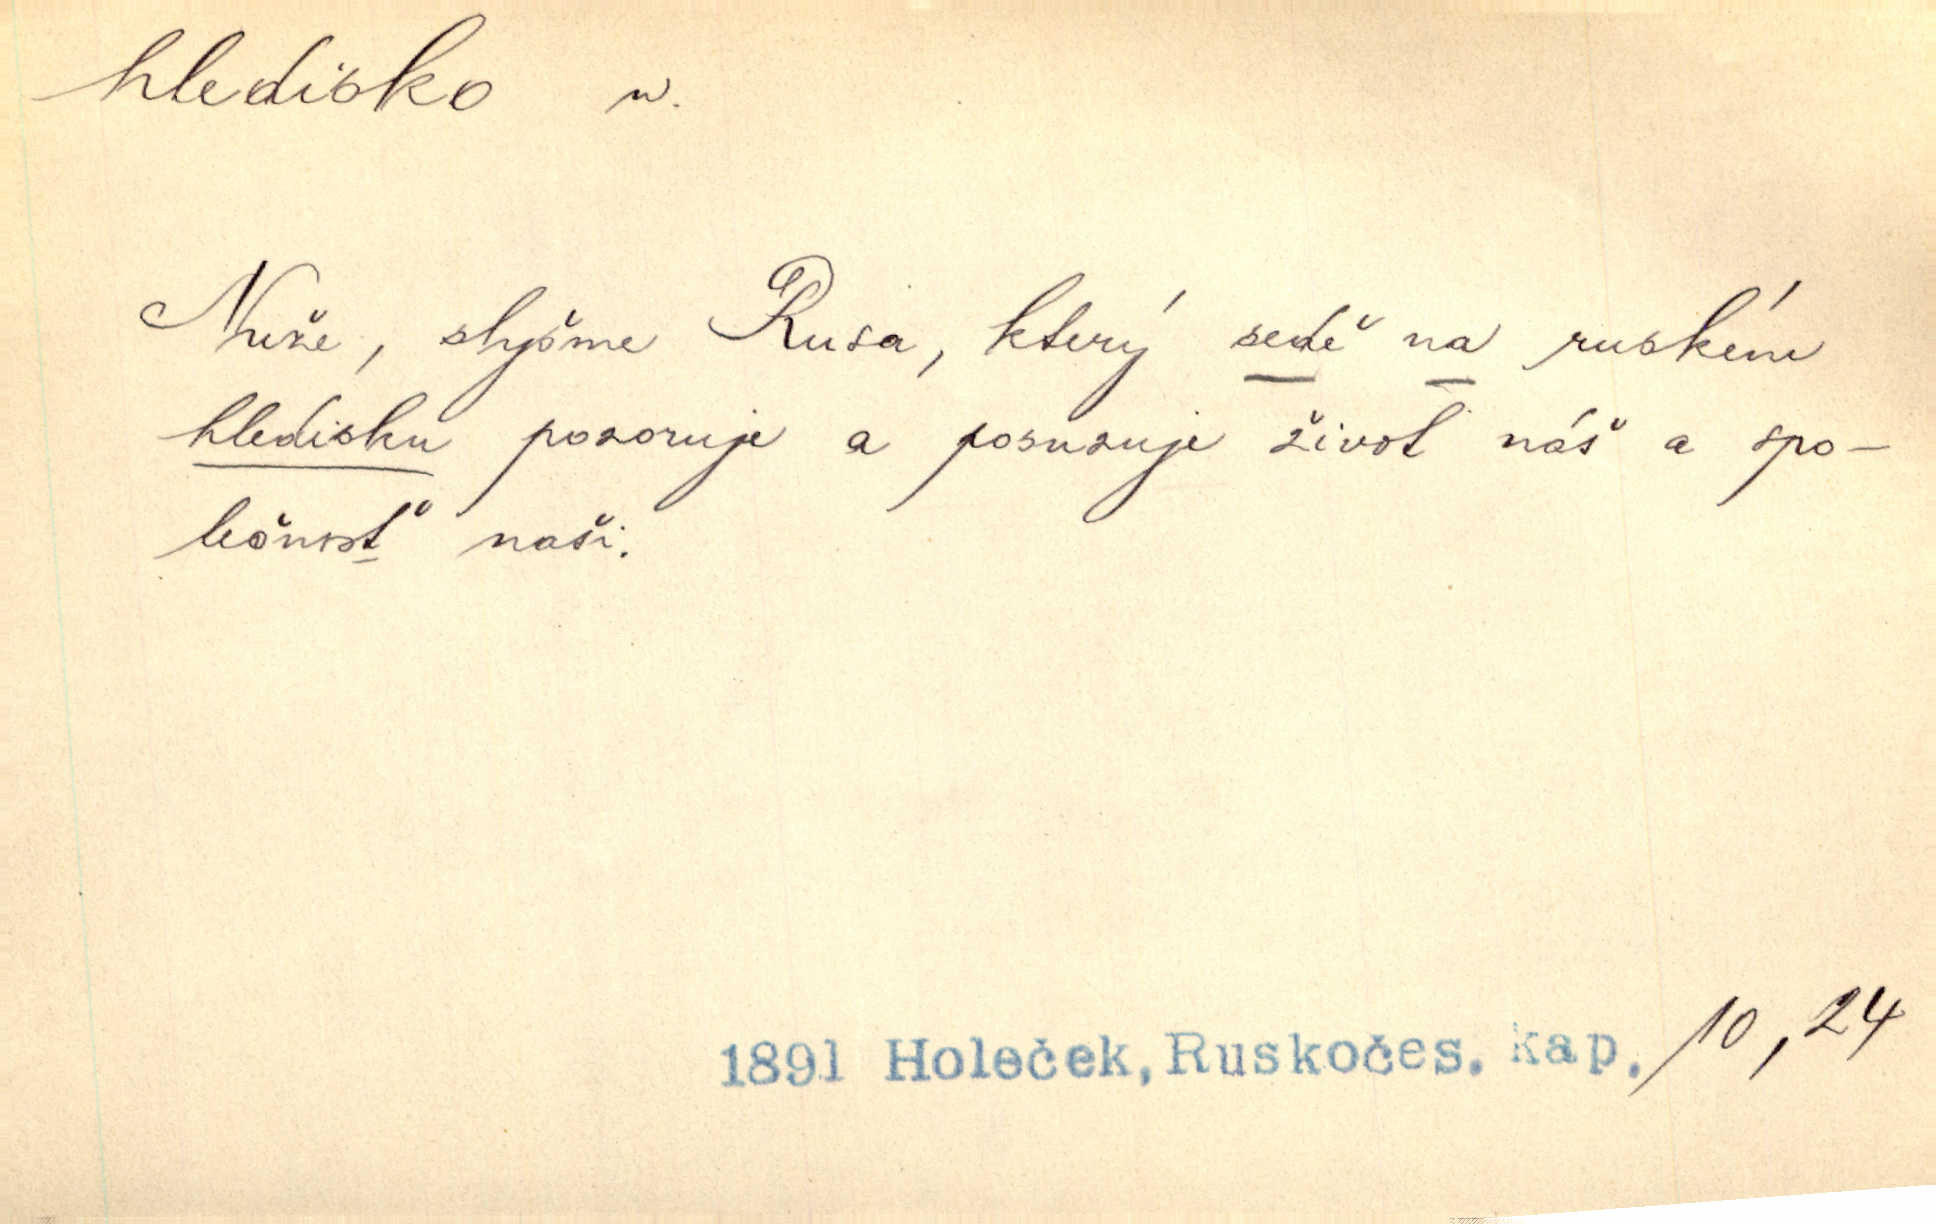 hledisko n.
Nuže, slyšme Rusa, který sedě na ruském
hledisku pozoruje a posuzuje život náš a spo-
lečnosť naši.
1891 Holeček, Ruskočes. kap. 10, 24